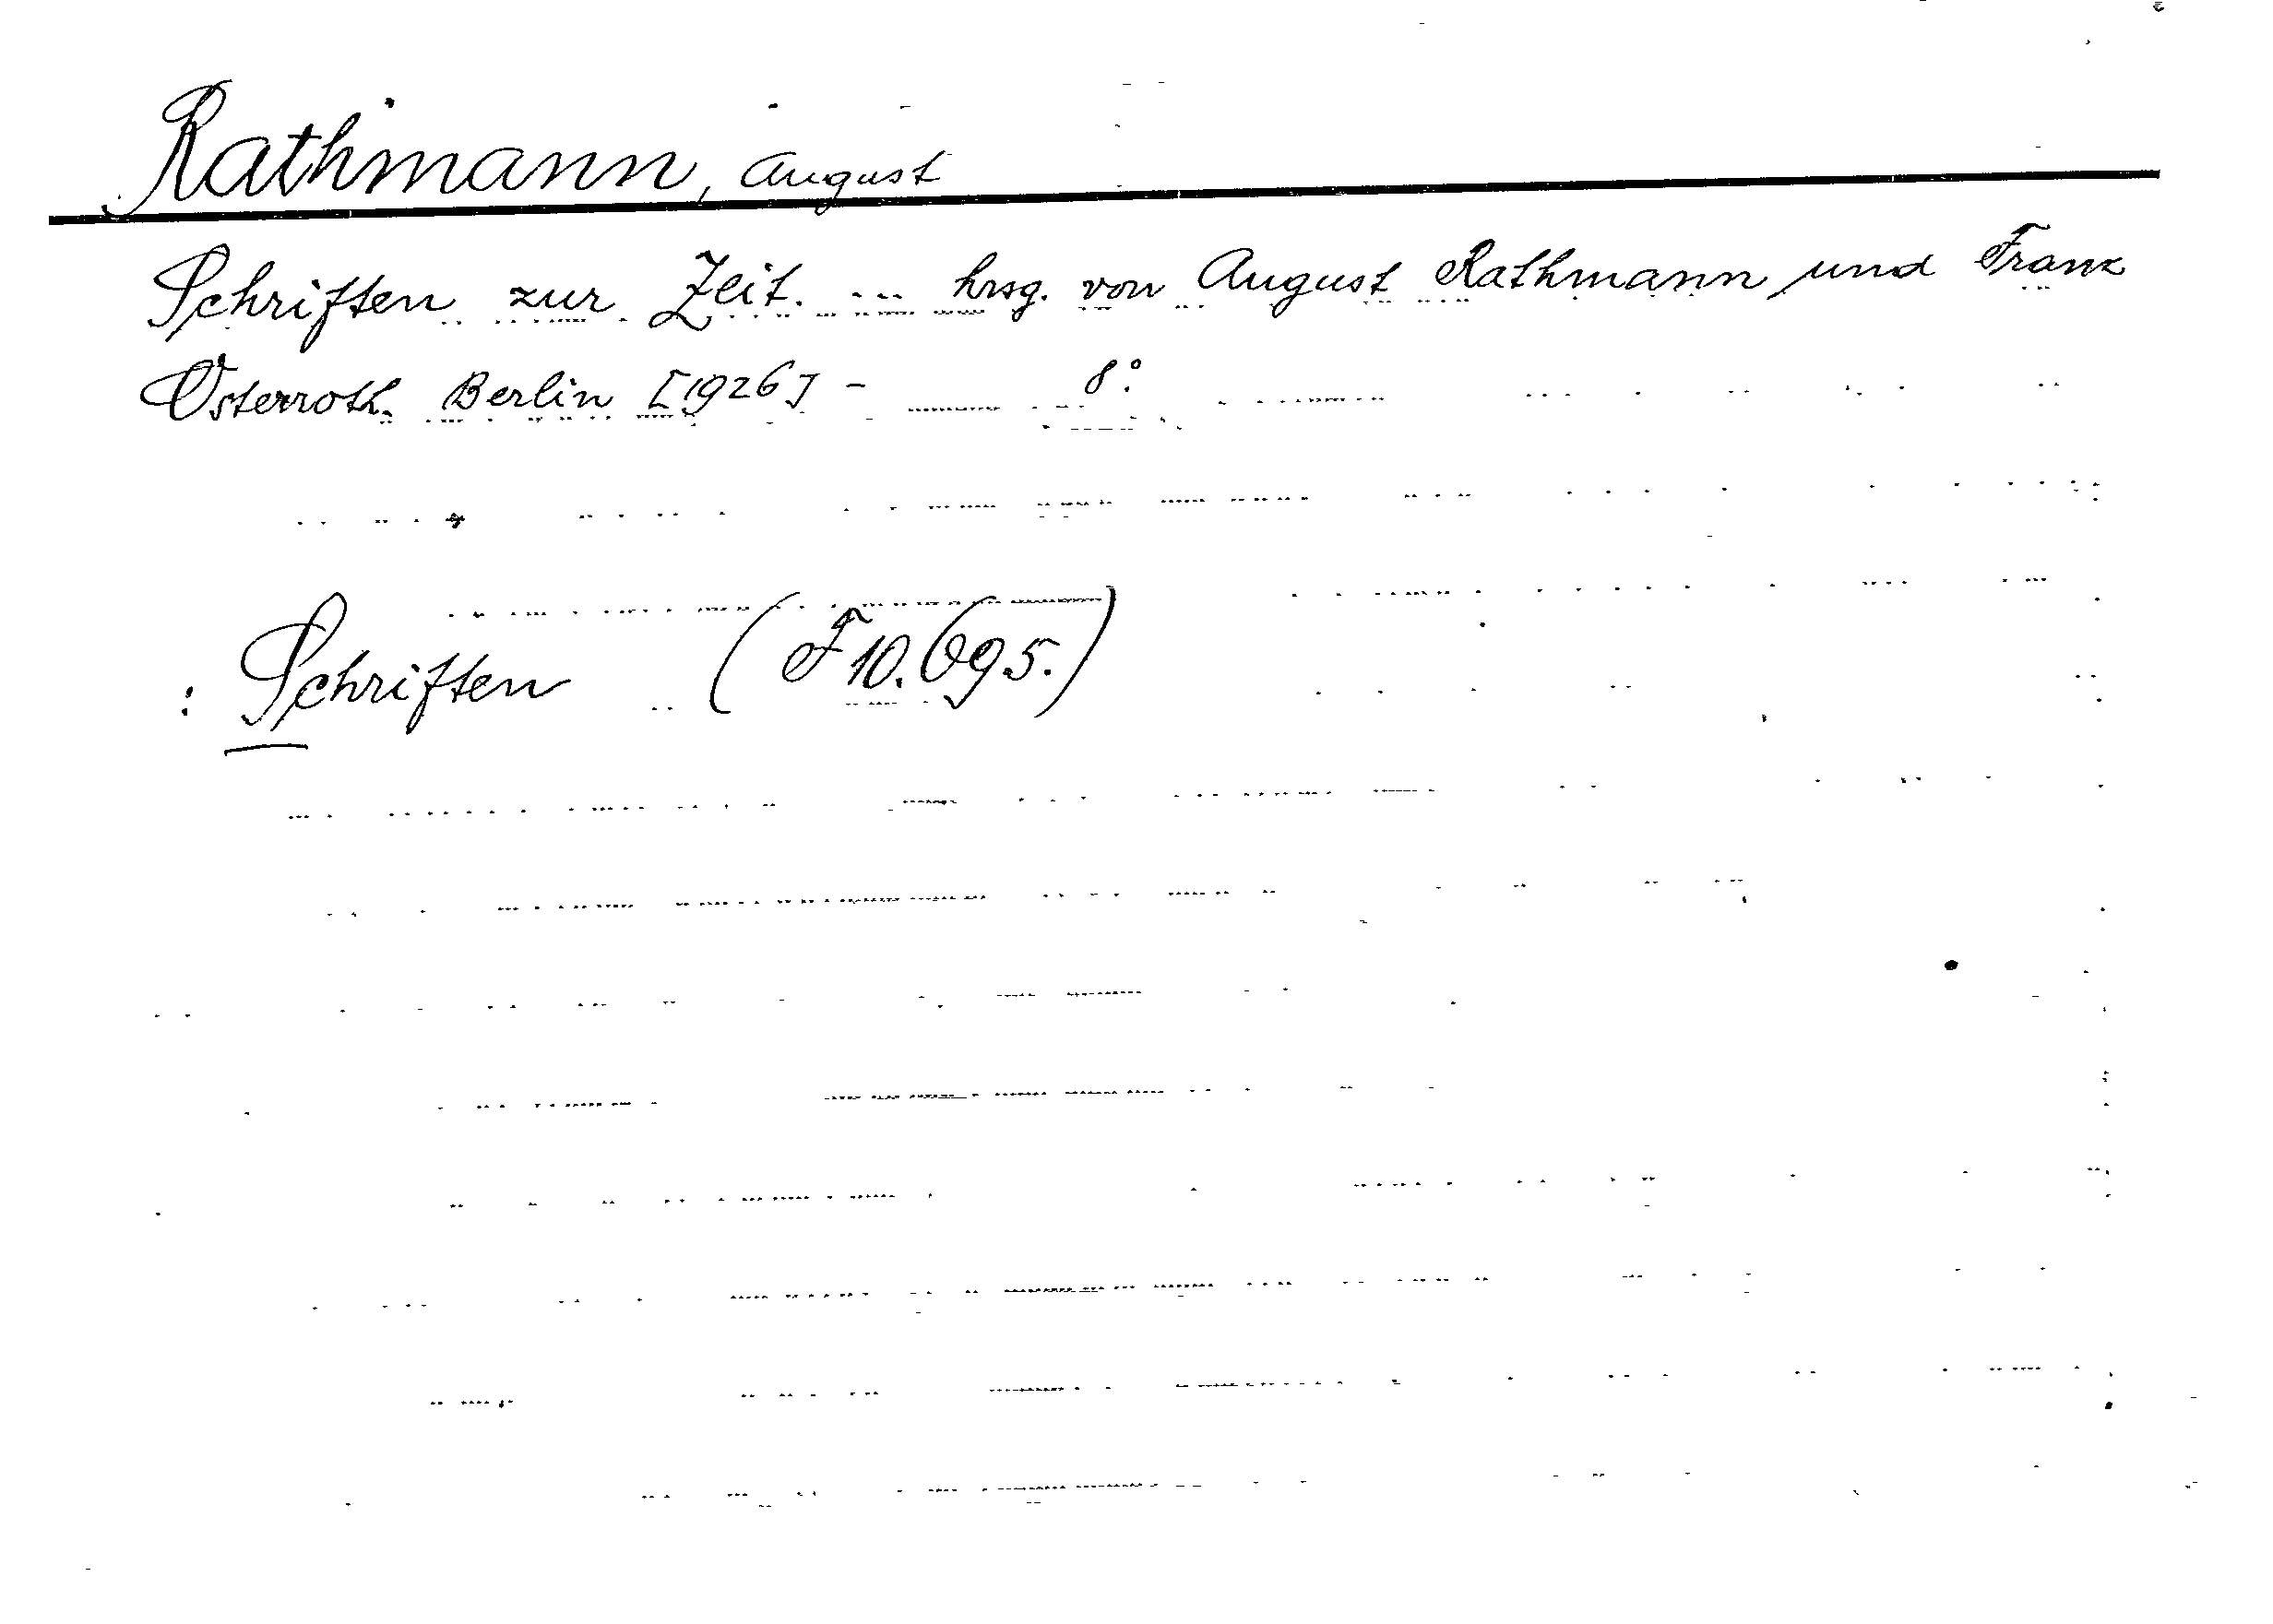 Rathmann, August
Schriften zur Zeit. ... hrsg. von August Rathmann und Franz
Osterroth. Berlin [1926] - 8°.
: Schriften (F 10.695.)